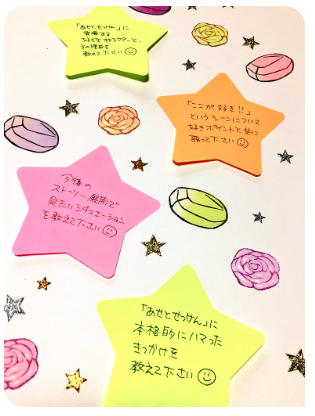 「あせとせっけん」に
登場する
好きなキャラクターと、
その理由を
教えて下さい☺
「ここが好き!!」
というシーンについて
好きポイントと共に
語って下さい☺
今後の
ストーリー展開で
見たいシチュエーション
を教えて下さい☺
「あせとせっけん」に
本格的にハマった
きっかけを
教えて下さい☺